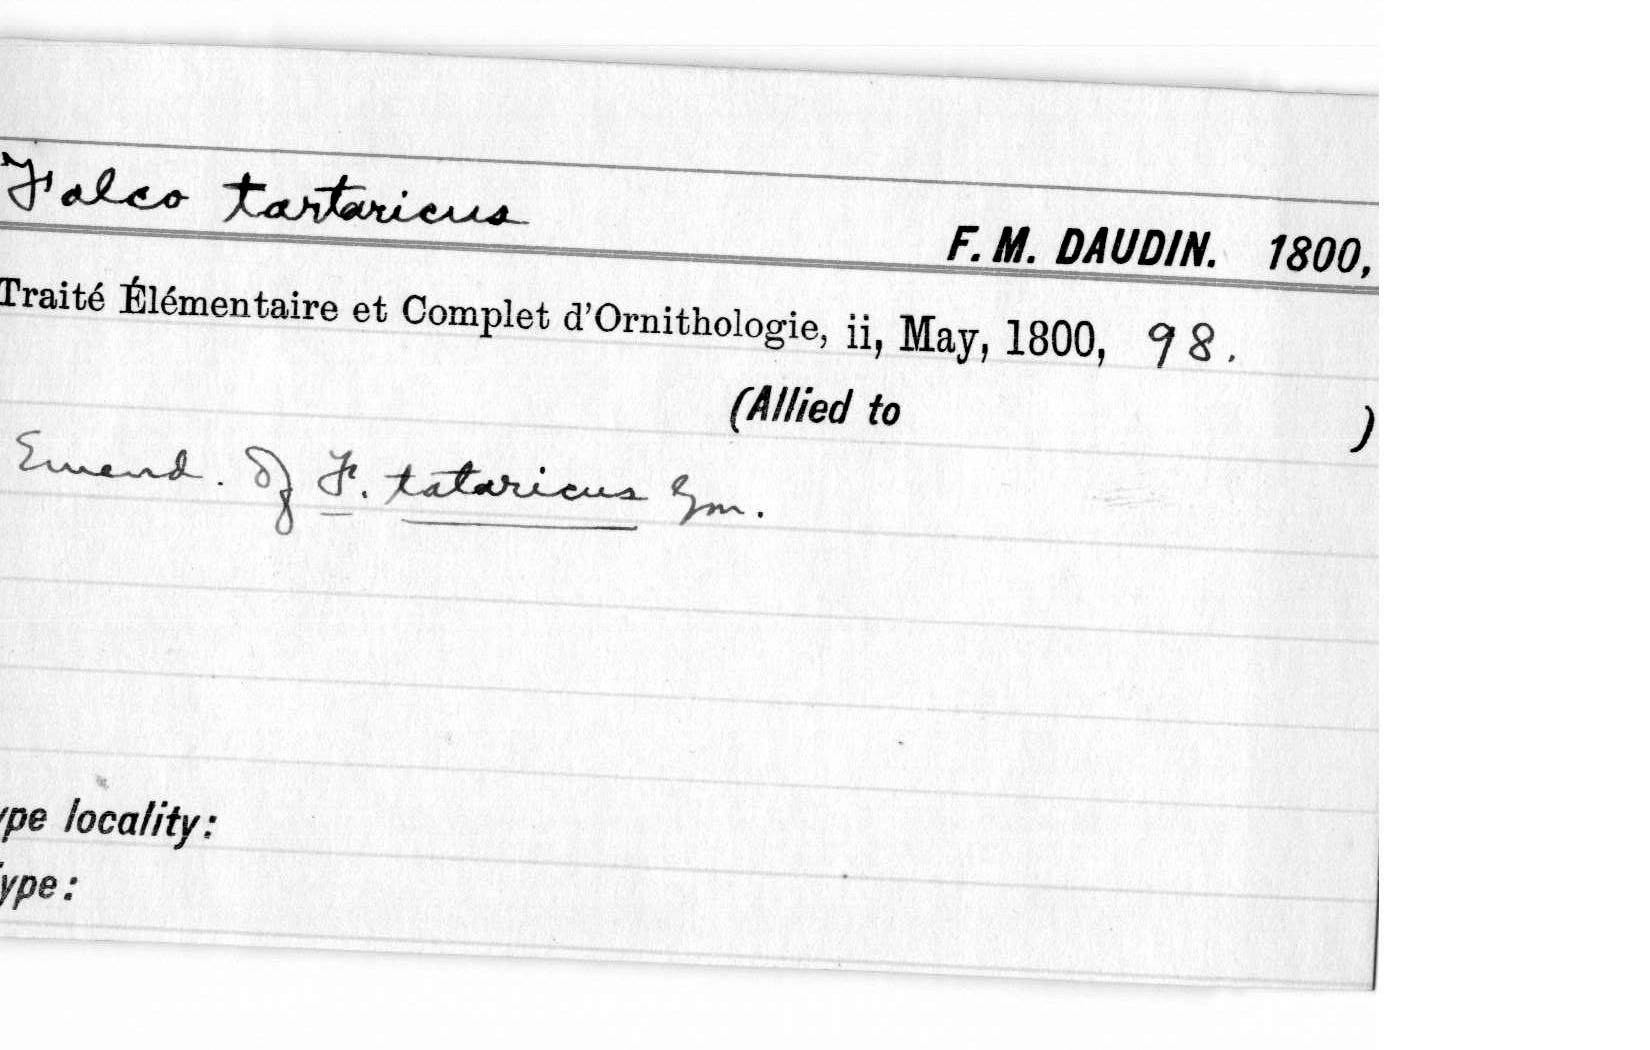 Falco tartaricus
F. M. DAUDIN. 1800,
Traité Élémentaire et Complet d'Ornithologie, ii, May, 1800, 98.
(Allied to )
Emend. of F. tataricus Gm.
ype locality:
ype: